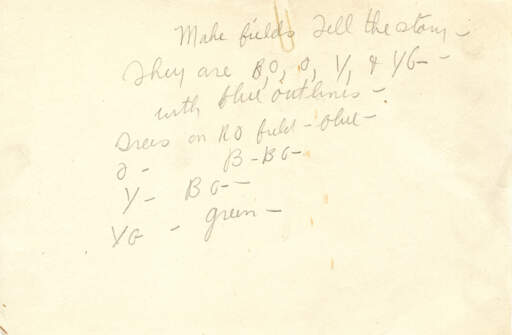 Make fields tell the story –
They are R,O, O, Y, & YG –
with blue outlines –
Trees on RO field – blue –
O – B – BG –
Y – BG –
YG – green –